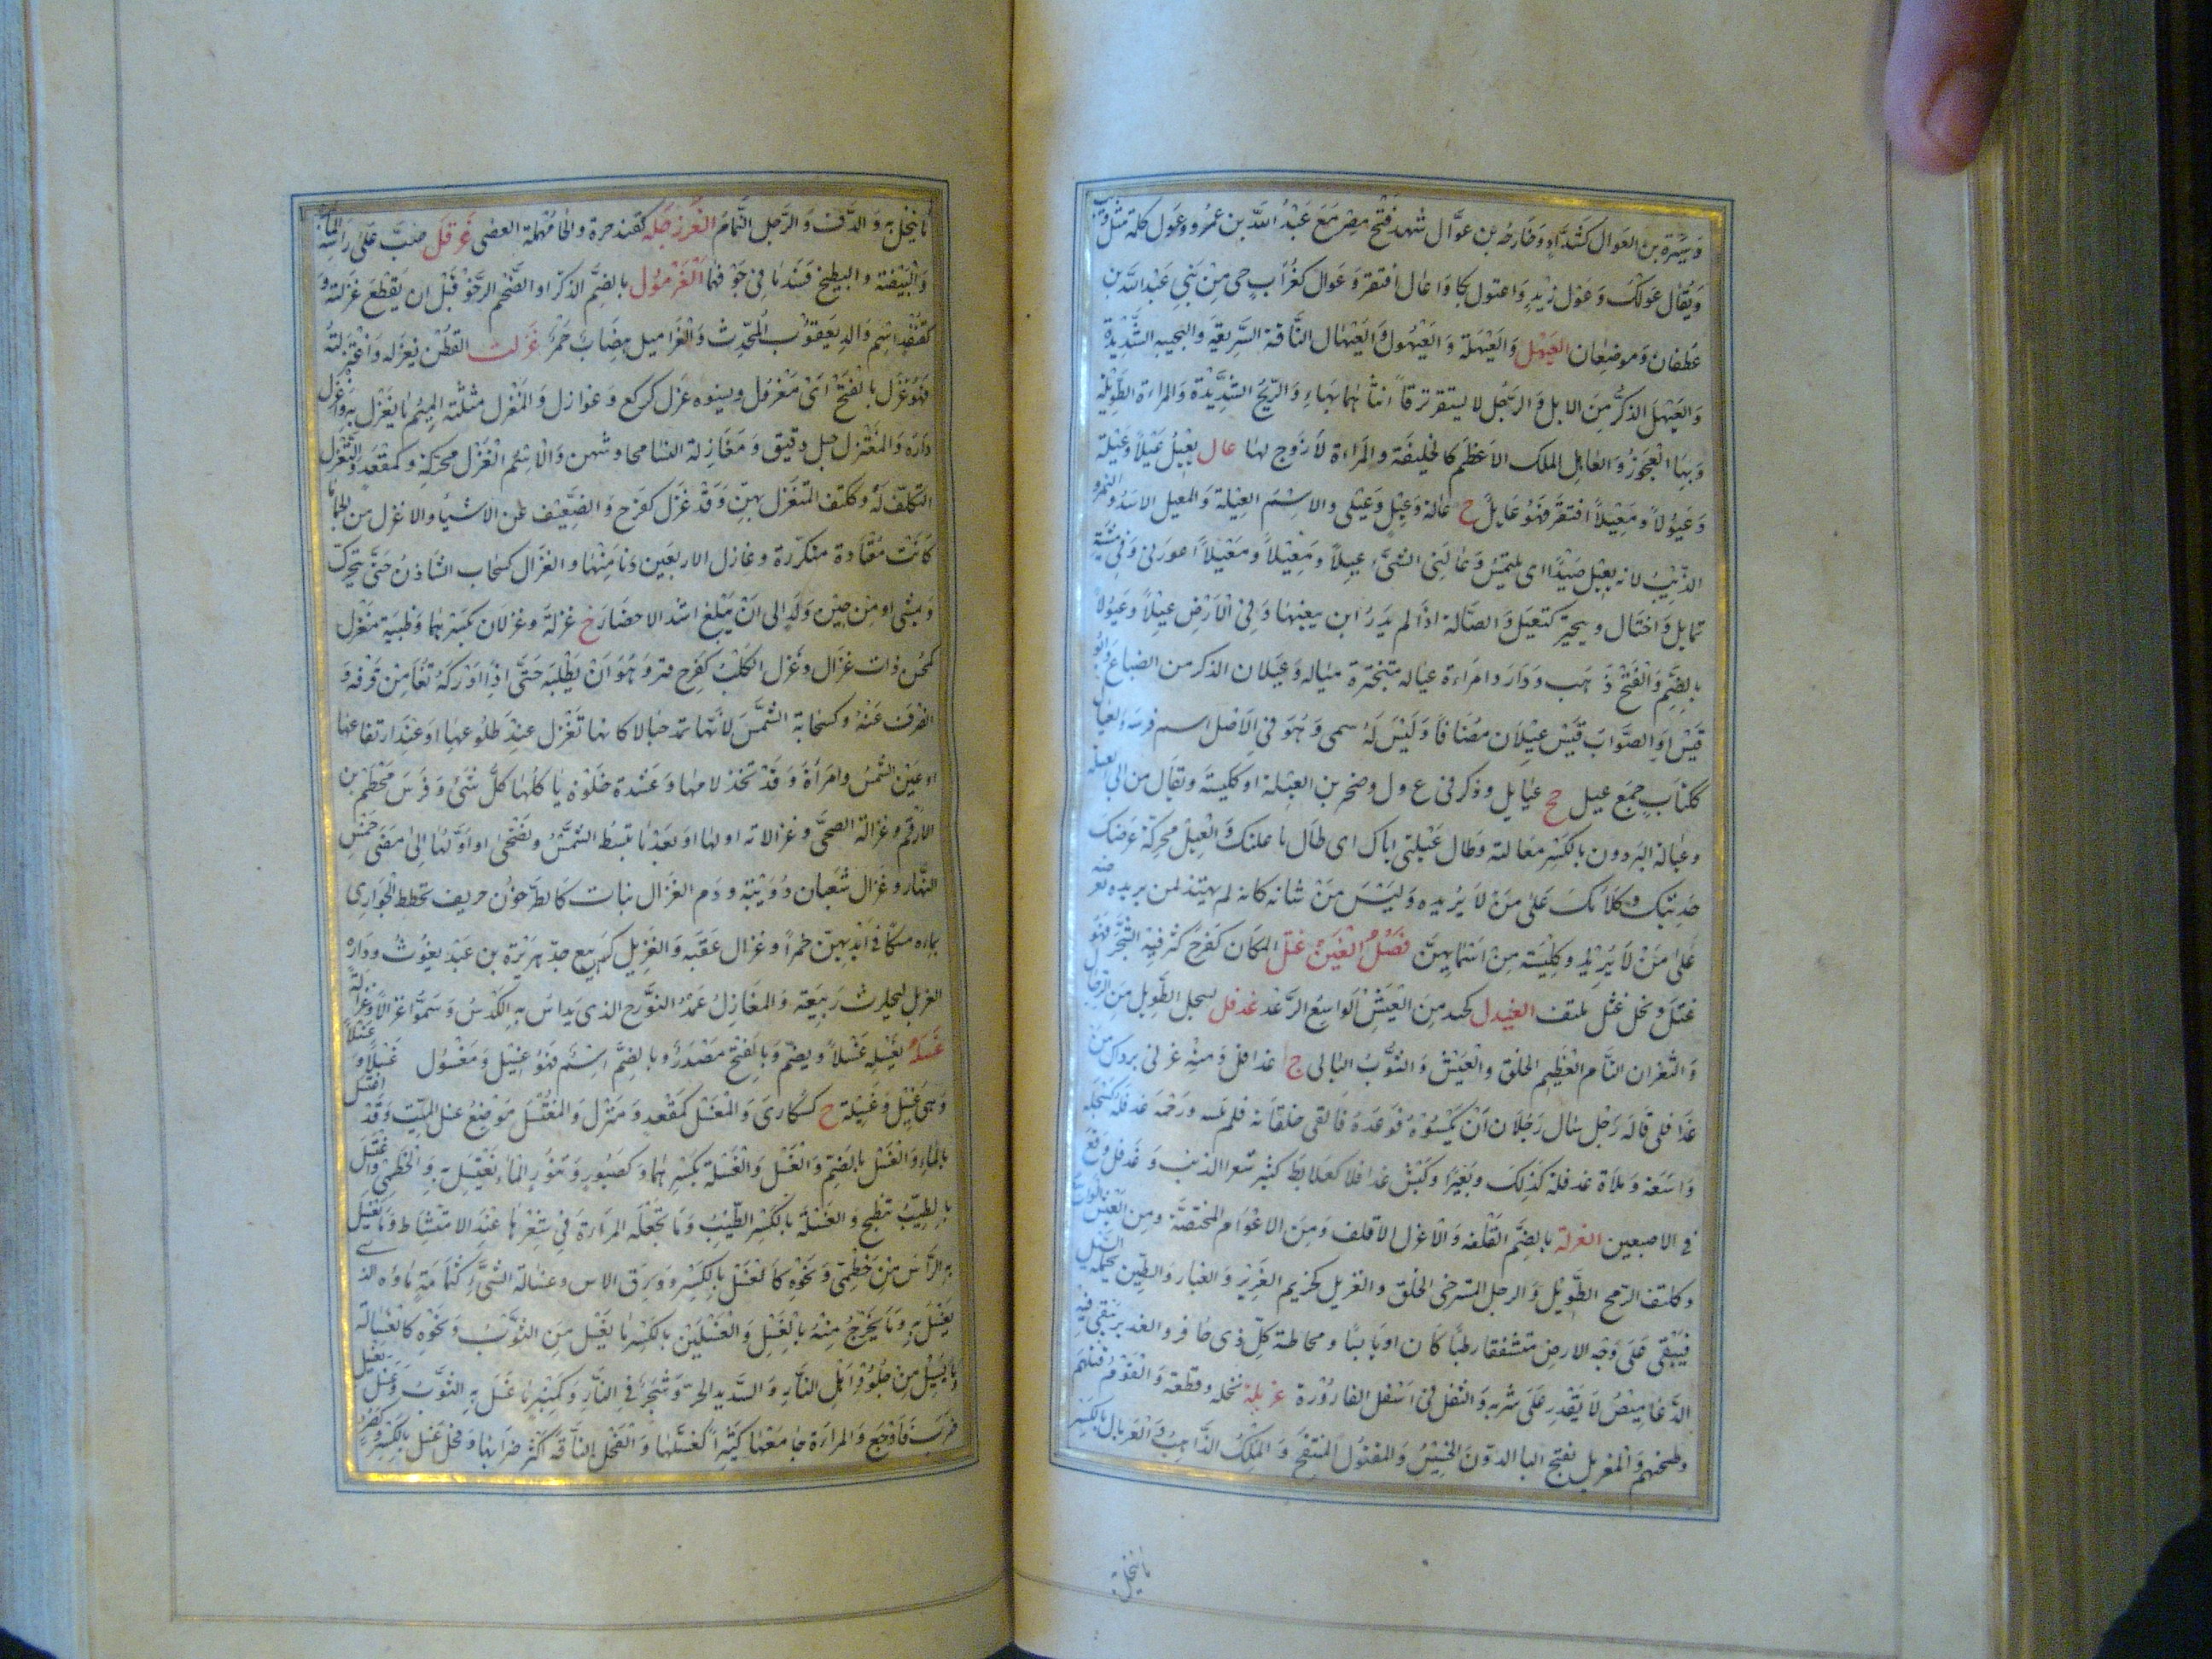 وَسَبْرَة بن العَوال كَشَدّادٍ وَخَارجَة بن عوَّال شهد فَتْح مِصْر مَعَ عَبْدُ اللَّه بن عَمْرو وعَوَل كلمة مثل وَيْب
وَيُقَال عَوَلَكَ وَعَوْل زَيْدٍ وَاعتول بَكا وَاعَال افتقر وَعَوال كغُرَابٍ حى مِنْ بَنِي عَبْد اللَّه بن
غطفان وَموضِعَان العَيْهَل وَالعَيْهَلة وَالعَيْهُول وَالعَيْهال النَّاقة السَّرِيعَة والنجيبة الشَّدِيْدَة
وَالعَيْهَل الذكَر مِنَ الابل وَالرَجُل لا يستقر نزقاً انثاهما بهاءٍ وَالرِّيْحُ الشَّدِيْدَة وَالمراءة الطَوِيْلَة
وَبهَا العَجُوْزُ وَالعَاهِل الملك الاَعظَم كالخلِيفَة والمرَاءة لاَ زَوج لها عال يعِيْلُ عَيْلاً وَعَيْلة
وَعُيُولاً وَمَعِيْلاً افتقَر فَهُوَ عَايِلٌ ج عَالة وَعِيْل وَعَيْلى والاسْم العَيْلة وَالمعيل الاسَدُ والنمر و
الذّيْبُ لانه يعِيْل صَيْدًا اى يلتمِسُ وَعَالَنِى الشَّىْء عيلاً وَمَعِيْلاً ومَعْيلاً اعوزنى وَفى مَشيَةِ
تمايل وَاختال وتبختر كتعيل وَالضَّالة اذا لم يَدْر اين يبغيها وَفِى الاَرْض عيْلاً وَعُيُولاً
بالضمّ وَالفَتح ذَهَب وَدَارَ وامرَاءة عياله متبخترة ميّاله وَعَيلان الذكر من الضباع وَابُو
قيْس اوِ الصَّواب قيْس عَيْلان مضَافاً وَلَيْسَ لَهُ سمى وَهُوَ فى الاَصل اسم فرسه والعيال
ككتاب جَمع عيل جج عيايل وذكر فى ع ول وصخر بن العيلة اوككيسة ويقال من ابى العيلة
وعيالة البرذون بالكسر معالته وَطال عَيْلتى اياك اى طال ما علتك وَالعيل محركة عرضك
حَديثك وكلاَمك عَلى مَنْ لاَ يُريده وَليْسَ مِنْ شانه كانه لم يهتد لمن يريده فعرضه
عَلى مَنْ لاَ يُرِيْد وكلِيْسَة مِنْ اَسْمَايِهِنَّ فصْلُ الغَين غتل المكان كفرح كثر فيه الشَّجَر فهُوَ
غتل وَنخل غتل ملتف الغيدل كحيدر مِنَ العَيْش الوَاسِعُ الرَّغد غدفل كسبحل الطوِيل مِنَ الرّجَال
وَالبعران التَّام العَظِيم الخلق والعَيْش وَالثوْبُ البالى ج غدافل وَمِنْه غرنى برداك من
غَدَافلى قالَه رَجُل سَال رَجُلاً ان يكسُوْهُ فوَعَدَهُ فَالقى خلقانه فلم يكسه ورَحْمَة غدفلة كسبحلة
وَاسَعَة وَملاَة غدفلة كذلك وبعيْر اوكبش غدَافل كعلابط كثير شَعر الذنب وَغدفل وَقع
فى الاصبعين الغرلة بالضَّم القلفه وَالاغرل الاقلف وَمِن الاعوَام المختصبة وَمِن العَيْش الوَاسع
وكلكتف الرّمح الطَّوِيْل وَالرجل المسترخى الخلق وَالغريل كحزيم الغِرْيَن وَالغبار والطِّين يحمله السيْل
فيَبْقى عَلى وَجْه الارضِ متشققا رطبًا كان اويَابسًا ومخاطة كلّ ذى حَافر والغدير يَبقى فيهِ
الدَّعَامِيْصُ لا يقدر عَلى شربه وَالثفل فى اسفل القارُوْرة غربلَه نخله وقطعه وَالقَوْمَ قتلهمْ
وطحنهم وَالمغربل بفتح البا الدوْن الخسِيْسُ وَالمقتوُل المنتفخ وَالملك الذَّاهِبُ وَالغربال بالكسر
ما ينخل به
مَا ينخَل به وَالدّف وَالرّجل النَّمام الغَرْزَحلة كقندحرة والحا مُهْملة العصى غَرْقَلَ صَبَّ عَلى رَاسه المآءَ
وَالبَيْضَة وَالبطيخ فسَدَ مَا فى جَوْفهمَا الغُرْمُول بالضمّ الذكر او الضَّخْم الرّخْو قبل ان يَقطع غرلته و
كقُنْفُذ اسم والِد يَعقُوْب المُحَدّث وَالغَرَاميل هضَابٌ حُمْر غزلت القطن يغزله وَاغتزلته
فهُوَ غزل بالفتح اى مَغزول ونسوه غزل كركع وَغوازل وَالمغزل مثلثة الميْم مَا يَغْزل به واغزل
دَارَهُ وَالمغتزل حبل دقيق وَمغَازلة النسا محادثتهن وَالاسْم الغَزَل محركة وكمقعد وَالتَّغَزُّل
التكلف لَه وككتف المتغزل بهن وَقَدْ غَزل كفرح وَالضعيف عن الاشيآء والاغزل من الحما مَا
كانَتْ مُعتَادة متكرّرة وغازل الاربَعِين دَنا مِنْهَا والغزَال كسَحاب الشَّادِن حَتَّى يتحرّك
وَيمشى او مِنْ حِيْن وُلد الى ان يَبْلغ اشد الاحضَار ج غزلة وَغزلان بكسرهما وَظبيَة مغزل
كمُحسن ذات غزال وَغزل الكَلْب كفَرح فتر وَهُوَ اَنْ يطلبه حَتَّى اذَا اَدْركَهُ ثَغَا مِنْ فرَقه وَ
انصَرَف عَنْهُ وكسَحَابة الشَّمْس لاَنَّها تمد حبَالا كانها تَغْزِل عِنْد طلُوعهَا اوعندَ ارتفَاعها
اوعَيْن الشَّمْسُ وامْرَأة وَقَدْ تُحذَف لامهَا وَعُشبة حلوَة يَا كلهَا كلّ شَىْء وَفرَس مُحطم بن
الاَرقم وغزالة الضحى وَغزالاته اولها اوبعد مَا تنبسط الشّمْسُ وتضْحى اواَوَّلها الى مضى خُمْس
النهَار وغزال شَعبان دُوَيْبَة ودم الغَزَال نبَات كالطرْخُون حريف تخطط الجَوارى
بمائه مسكا فى اَيديهن حُمراً وغزال عَقبَة وَالغُزيْل كزُبيْر جد هَزَلة بن عَبْد يَغُوثَ ودَاره
الغزيل لحارث رَبيعَة وَالمغَازِل عمَد النَّوْرج الذى يدَاس به الكُدْسُ وَسَمَّوْا غزالاً وَغزالة
غَسَلَهُ يغْسله غَسْلاً ويضم وَبالفَتح مَصْدَر وبالضمّ اسْم فَهُوَ غَسِيْل وَمَغْسُول
وَهى غسِيل وَغسيلة ج كسكارى وَالمغسل كمقعد وَمَنْزِل وَالمغتسَل مَوْضِعُ غسل الميّت وَقَدْ اغتسَل
بالماءِ وَالغَسُل بالضم وَالغَسْل وَالغسْلة بكسرهما وكَصَبُور وتَنُّور الماءُ يغتسَل به وَالخطْمى وَاغتسَل
بالطيب تنضح وَالغسْلة بالكسْر الطّيْبُ وَمَا تَجْعَلَه المرأة فى شعرهَا عنْد الامتشَاط وَمَا يُغسَل
به الرّاس مِنْ خِطْمِى وَنحوه كالغسْل بالكسْر ووَرق الاس وَغسَالة الشىْء كثُمَامَة مَاؤه الذى
يغسَلُ به وَمَا يخرجُ مِنْهُ بالغسْل وَالغسْليْن بالكسْر مَا يغسل مِن الثوْب وَنحوه كالغسَالة
وما يسيْل مِن جُلُوْد اَهْل النَّار وَالشَّديد الحر وَشَجَر فى النَّار وكمنْبر مَا غسَل به الثوْبُ وَغَسَل يغسِل
ضَرَبَ فَاَوْجَع وَالمرَأة جَامعَها كثيراً كغَسَّلهَا وَالفَحْل النَّاقَة اكثر ضرَابهَا وَفحل غسل بالكسر وكصرد